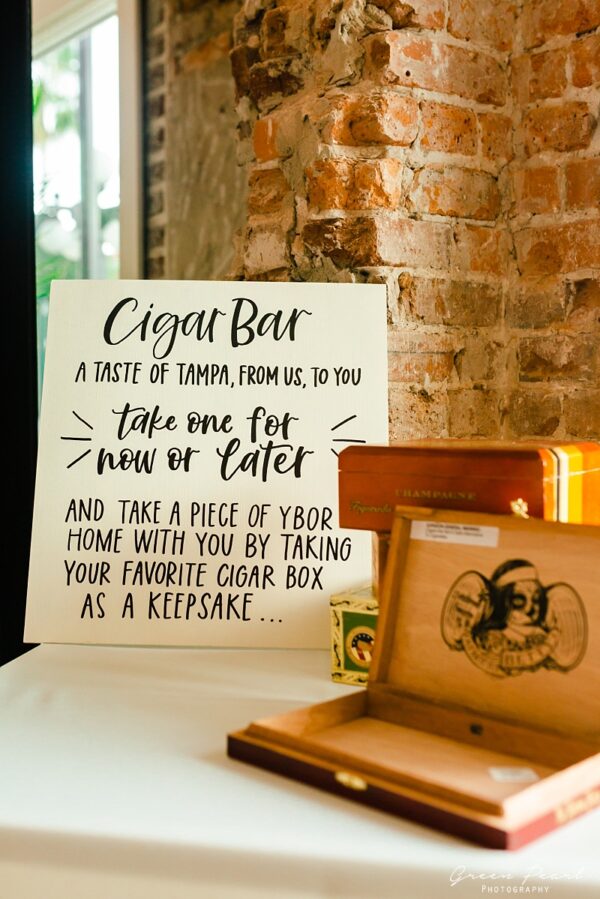 Cigar Bar
A TASTE OF TAMPA, FROM US, TO YOU
take one for
now or later
AND TAKE A PIECE OF YBOR
HOME WITH YOU BY TAKING
YOUR FAVORITE CIGAR BOX
AS A KEEPSAKE...
CHAMPAGNE
Green Pearl
PHOTOGRAPHY